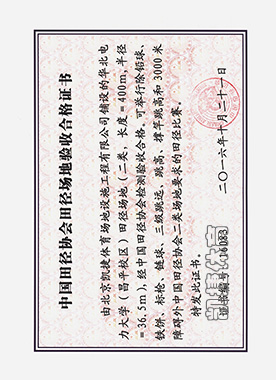 中国田径协会田径场地验收合格证书
由北京凯捷体育场地设施工程有限公司铺设的华北电
力大学（昌平校区）田径场地（二类，长度=400m,半径
=36.5m),经中国田径协会检测验收合格,可举行除铅球、
铁饼、标枪、链球、三级跳远、跳高、撑竿跳高和3000米
障碍外中国田径协会二类场地要求的田径比赛。
特发此证书。
二〇一六年十月二十一日
凯捷体育